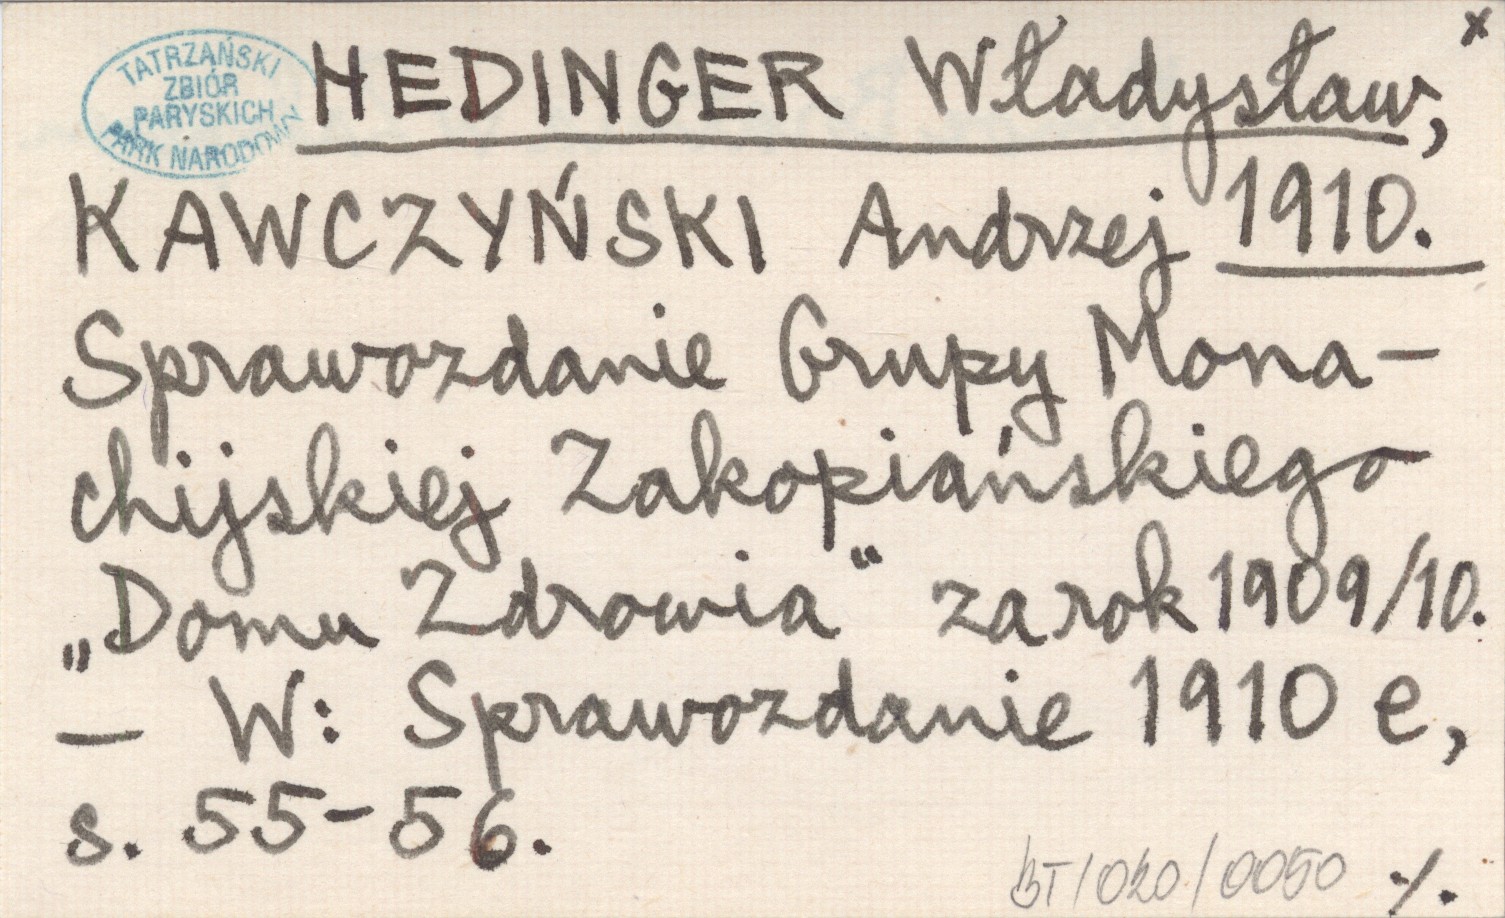 TATRZAŃSKI
ZBIÓR
PARYSKICH
PARK NARODOWY
HEDINGER Władysław, x
KAWCZYŃSKI Andrzej 1910.
Sprawozdanie Grupy Mona-
chijskiej Zakopiańskiego
„Domu Zdrowia“ za rok 1909/10.
— W: Sprawozdanie 1910 e,
s. 55-56.
BT/020/0050 ·/.